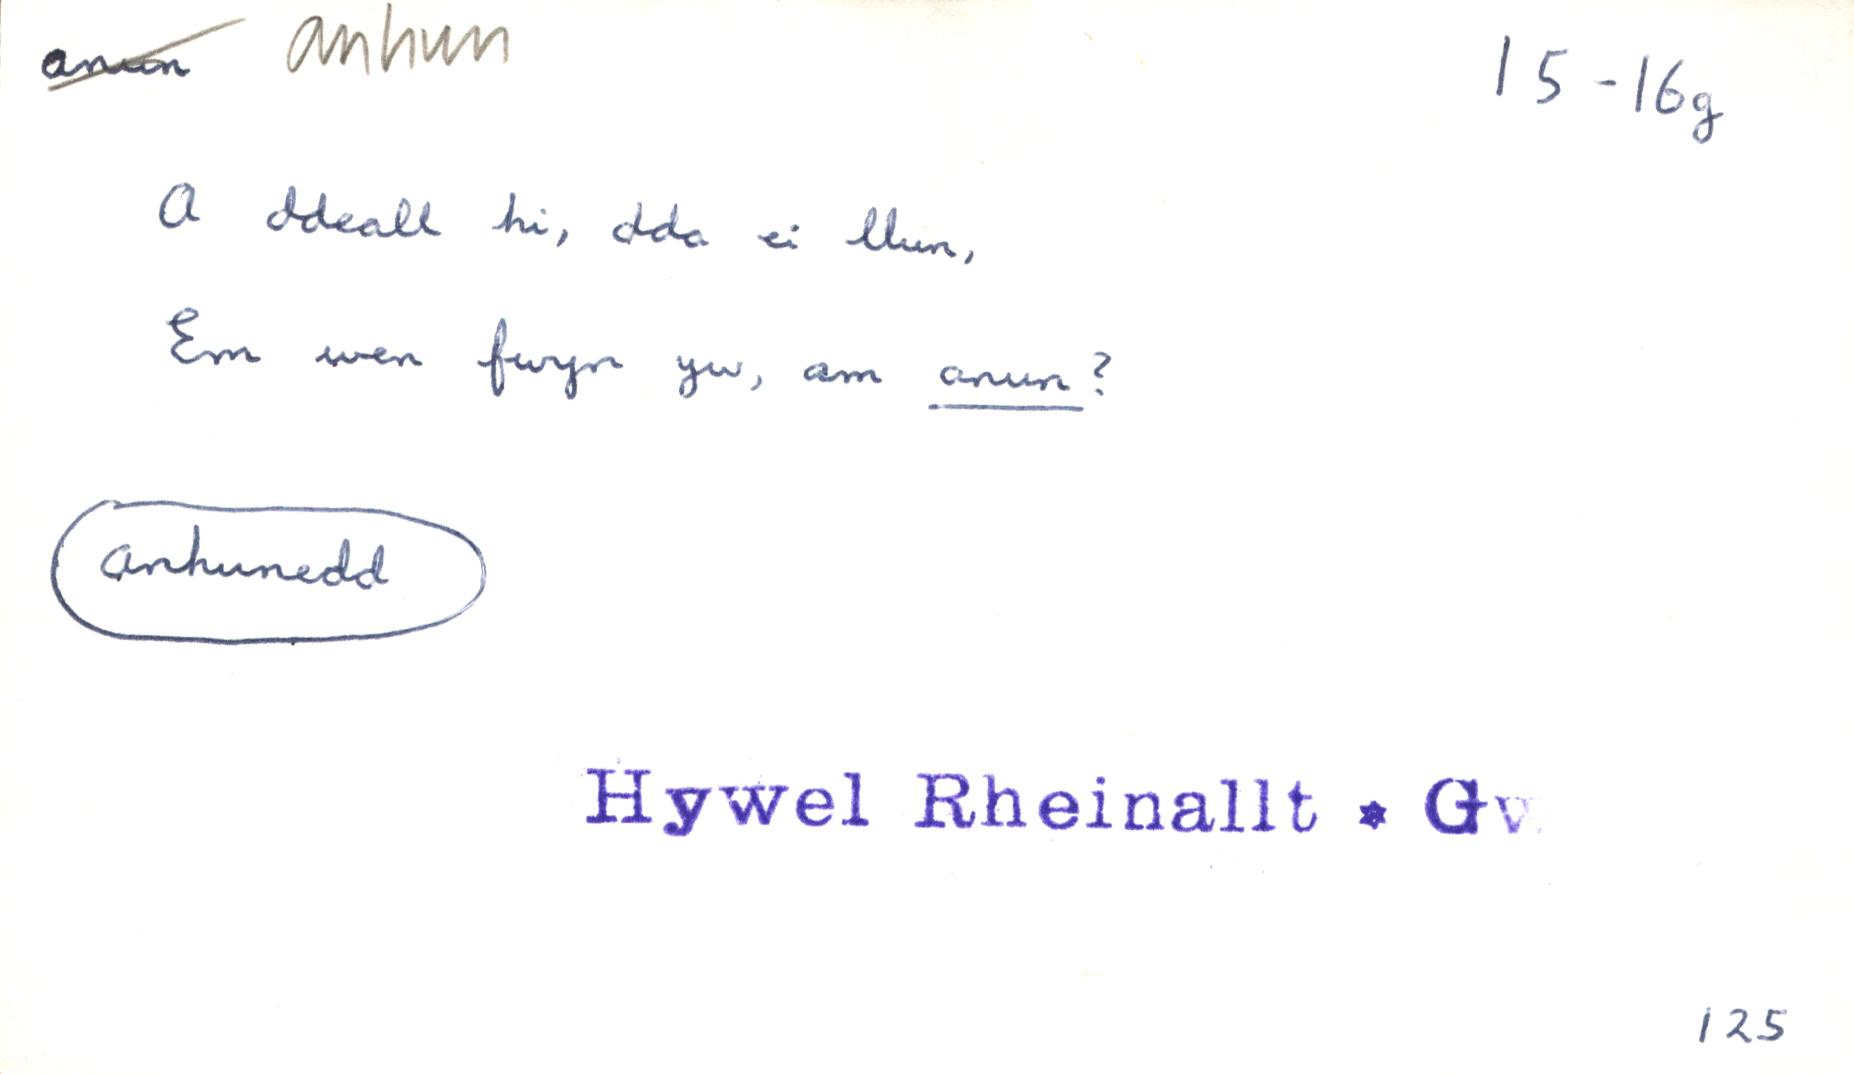 anun anhun 15-16g
A ddeall hi, dda ei llun,
Em wen fwyn yw, am anun?
anhunedd
Hywel Rheinallt * Gw
125